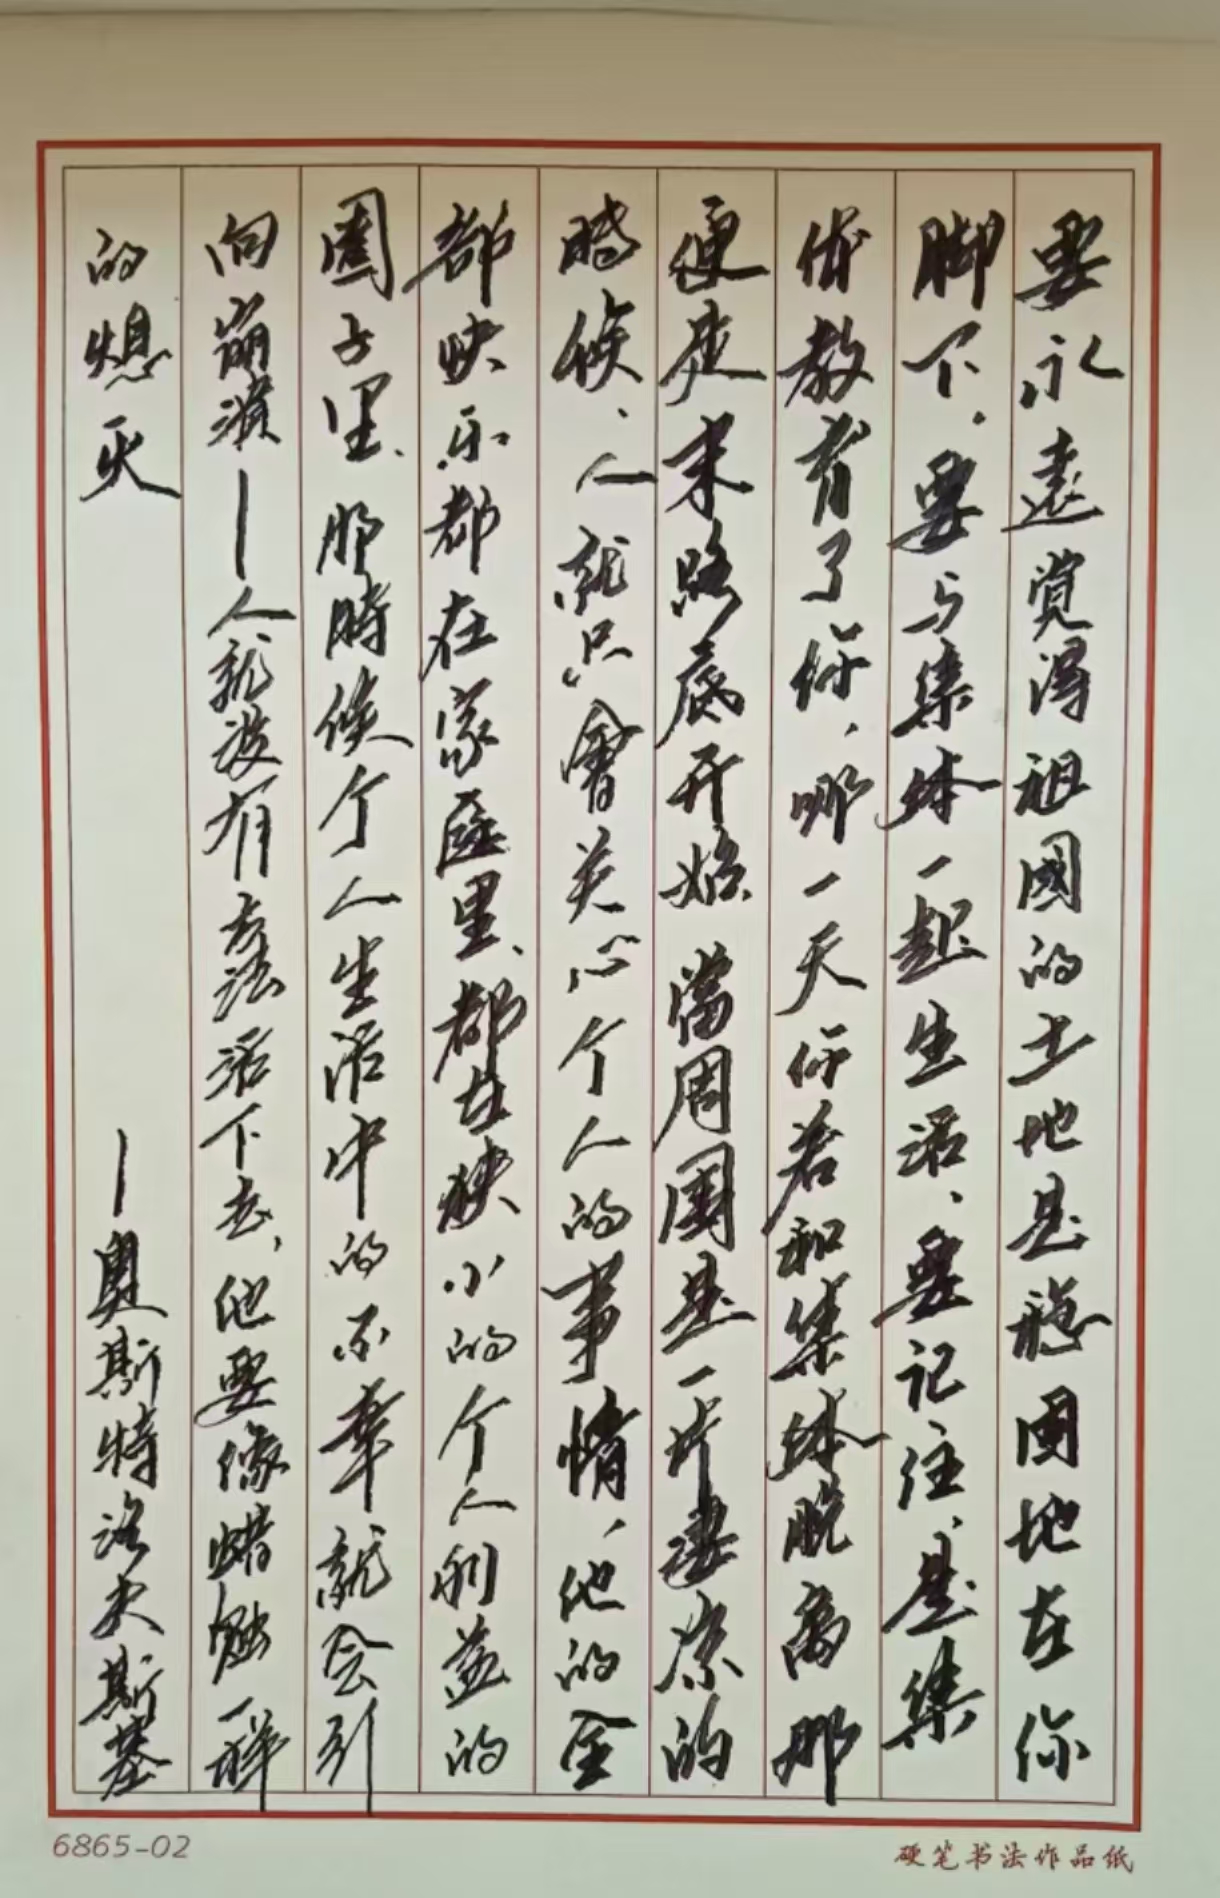 要永遠覚得祖國的土地是穩固地在你
脚下，要与集体一起生活，要记住，是集
体教育了你，哪一天你若和集体脱离那
便是末路底开始 當周围是一片凄凉的
時候，人就只會关心个人的事情，他的全
部快乐都在家庭里，都在狭小的个人利益的
圈子里，那時候个人生活中的不幸就会引
向崩溃—人就没有方法活下去，他要像蜡烛一样
的熄灭
—奥斯特洛夫斯基
6865-02
硬笔书法作品纸